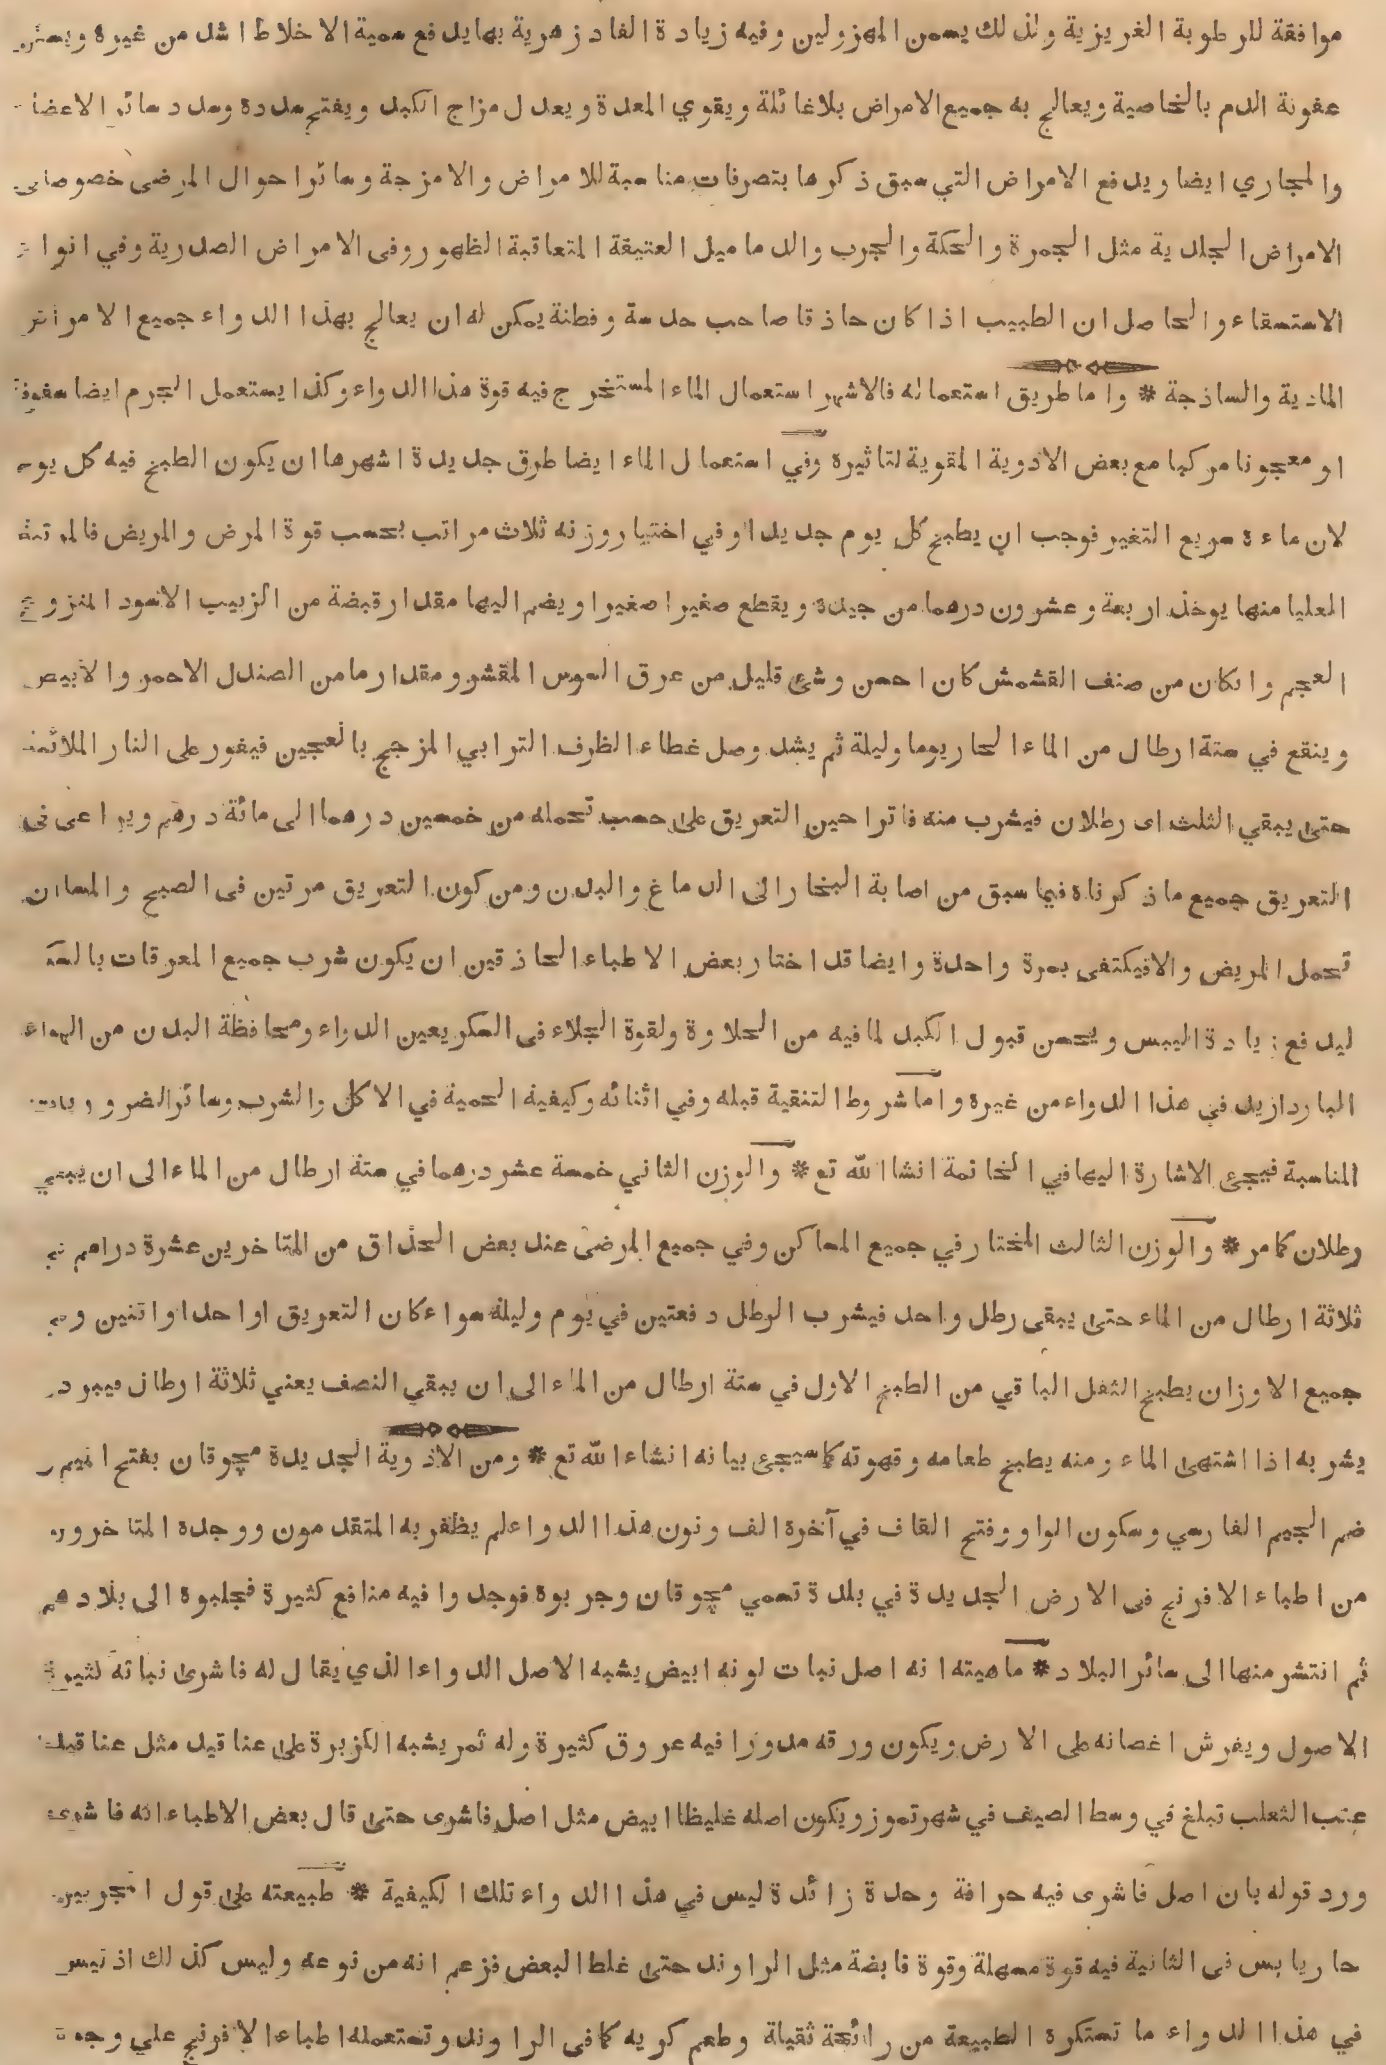 موافقة للرطوبة الغريزية ولذلك يسمن المهزولين وفيه زيادة الفادزهرية بها يدفع سمية الاخلاط اشد من غيره
عفونة الدم بالخاصية ويعالج به جميع الامراض بلا غائلة ويقوي المعدة ويعدل مزاج الكبد ويفتح سدده وسدد سائر الاعضا
والمجاري ايضا ويدفع الامراض التي سبق ذكرها بتصرفات مناسبة للامراض والامزجة وسائر احوال المرضى خصوصا في
الامراض الجلدية مثل الجمرة والحكة والجرب والدماميل العتيقة المتعاقبة الظهور وفى الامراض الصدرية وفي انواع
الاستسقاء والحاصل ان الطبيب اذا كان حاذقا صاحب حدسة وفطنة يمكن له ان يعالج بهذا الدواء جميع الامراض
المادية والساذجة * واما طريق استعماله فالاشهر استعمال الماء المستخرج فيه قوة هذا الدواء وكذا يستعمل الجرم ايضا سفوفا
او معجونا مركبا مع بعض الادوية المقوية لتاثيره وفي استعمال الماء ايضا طرق جديدة اشهرها ان يكون الطبخ فيه كل يوم
لان ماءه سريع التغير فوجب ان يطبخ كل يوم جديدا وفي اختيار وزنه ثلاث مراتب بحسب قوة المرض والمريض فالمرتبة
العليا منها يوخذ اربعة وعشرون درهما من جيده ويقطع صغيرا صغيرا ويضم اليها مقدار قبضة من الزبيب الاسود المنزوع
العجم وانكان من صنف القشمش كان احسن وشئ قليل من عرق السوس المقشر ومقدار ما من الصندل الاحمر والابيض
وينقع في ستة ارطال من الماء الحار يوما وليلة ثم يشد وصل غطاء الظرف الترابي المزجج بالعجين فيفور على النار الملائمة
حتى يبقي الثلث اى رطلان فيشرب منه فاترا حين التعريق على حسب تحمله من خمسين درهما الى مائة درهم ويراعى فى
التعريق جميع ما ذكرناه فيما سبق من اصابة البخار الى الدماغ والبدن ومن كون التعريق مرتين فى الصبح والمسا ان
تحمل المريض والا فيكتفى بمرة واحدة وايضا قد اختار بعض الاطباء الحاذقين ان يكون شرب جميع المعرقات بالسكر
ليدفع زيادة اليبس ويحسن قبول الكبد لما فيه من الحلاوة ولقوة الجلاء فى السكر يعين الدواء ومحافظة البدن من الهواء
البارد ازيد في هذا الدواء من غيره واما شروط التنقية قبله وفي اثنائه وكيفية الحمية في الاكل والشرب وسائر الضروريات
المناسبة فيجئ الاشارة اليها في الخاتمة انشا الله تع * والوزن الثاني خمسة عشر درهما في ستة ارطال من الماء الى ان يبقي
رطلان كما مر * والوزن الثالث المختار في جميع المساكن وفي جميع المرضى عند بعض الحذاق من المتاخرين عشرة دراهم في
ثلاثة ارطال من الماء حتى يبقى رطل واحد فيشرب الرطل دفعتين في يوم وليلة سواء كان التعريق واحدا او اثنين وفي
جميع الاوزان يطبخ الثفل الباقي من الطبخ الاول في ستة ارطال من الماء الى ان يبقي النصف يعني ثلاثة ارطال فيبرد
يشربه اذا اشتهى الماء ومنه يطبخ طعامه وقهوته كما سيجئ بيانه انشاء الله تع * ومن الادوية الجديدة مچوقان بفتح الميم و
ضم الجيم الفارسي وسكون الواو وفتح القاف في آخره الف ونون هذا الدواء لم يظفر به المتقدمون ووجده المتاخرون
من اطباء الافرنج فى الارض الجديدة في بلدة تسمي مچوقان وجربوه فوجدوا فيه منافع كثيرة فجلبوه الى بلادهم
ثم انتشر منها الى سائر البلاد * ماهيته انه اصل نبات لونه ابيض يشبه الاصل الدواء الذي يقال له فاشرى نباته كثيرة
الاصول ويفرش اغصانه على الارض ويكون ورقه مدورا فيه عروق كثيرة وله ثمر يشبه الكزبرة على عناقيد مثل عناقيد
عنب الثعلب تبلغ في وسط الصيف في شهر تموز ويكون اصله غليظا ابيض مثل اصل فاشرى حتى قال بعض الاطباء انه فاشرى
ورد قوله بان اصل فاشرى فيه حرافة وحدة زائدة ليس في هذا الدواء تلك الكيفية * طبيعته على قول المجربين
حار يابس فى الثانية فيه قوة مسهلة وقوة قابضة مثل الراوند حتى غلط البعض فزعم انه من نوعه وليس كذلك اذ ليس
في هذا الدواء ما تستكره الطبيعة من رائحة ثقيلة وطعم كريه كما فى الراوند وتستعمله اطباء الافرنج علي وجوه